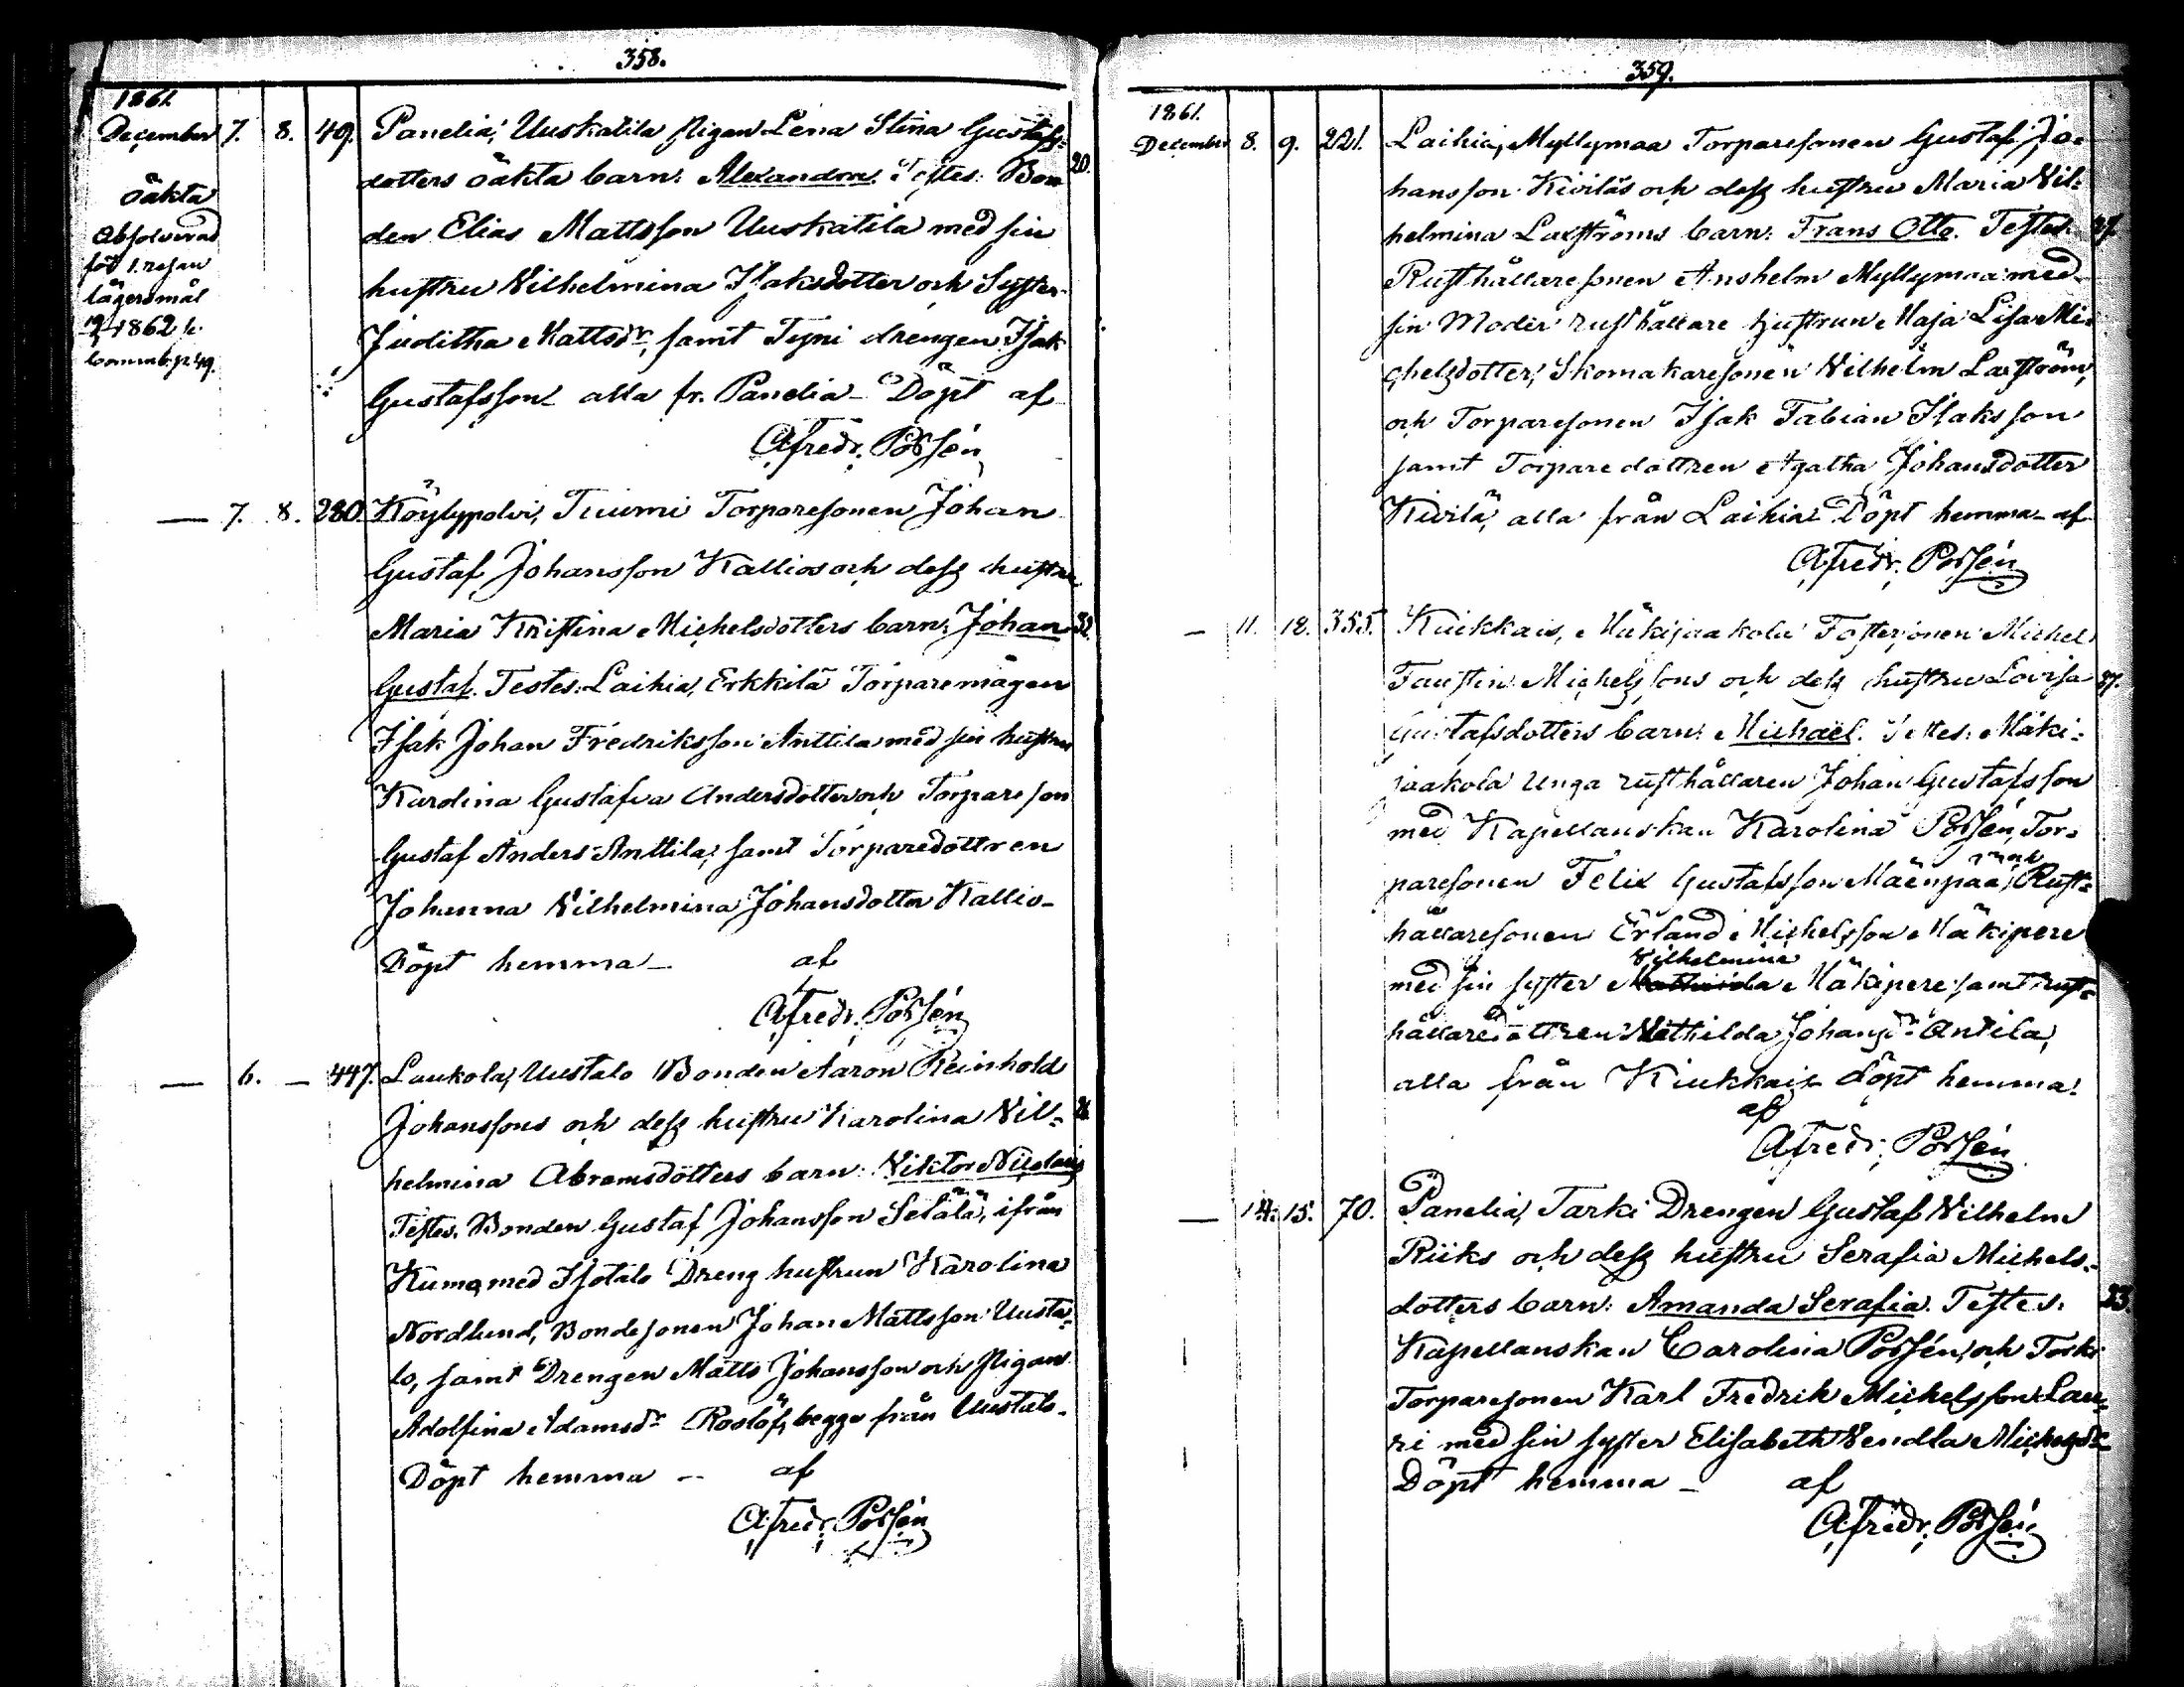 358.
1861.
December 7. 8. 49. Panelia, Uuskatila Pigan Lena Stina Gustafs-
dotters oäkta barn: Alexandra. Testes: Bon- 20.
den Elias Mattsson Uuskatila med sin
hustru Vilhelmina Isaksdotter och Syster
Juditha Mattsdr, samt Tyni drengen Isak
Gustafsson alla fr. Panelia - Döpt af
Afredr. Possén
oäkta
Absolverad
för 1. resan
lägersmål
1862
Commb. p. 49.
— 7. 8. 280. Köylypolvi, Tuumi Torparesonen Johan
Gustaf Johansson Kallios och dess hustru
Maria Kristina Michelsdotters barn: Johan 32.
Gustaf. Testes: Laihia, Erkkilä Torparemågen
Isak Johan Fredriksson Anttila med sin hustru
Karolina Gustafva Andersdotter och Torpareson
Gustaf Anders Anttila, samt Torparedottren
Johanna Vilhelmina Johansdotter Kallio-
Döpt hemma — af
Afredr. Possén
— 6. — 447. Laukola, Uustalo Bonden Aaron Reinhold
Johanssons och dess hustru Karolina Vil-
helmina Abramsdotters barn: Viktor Nicolaus
Testes. Bonden Gustaf Johansson Setälä, ifrån
Kumo, med Isotalo Dreng hustrun Karolina
Nordlund, Bondesonen Johan Mattsson Uusta-
lo, samt Drengen Matts Johansson och Pigan
Adolfina Adamsdr Roslöf, begge från Uustalo.
Döpt hemma — af
Afredr. Possén
359.
1861.
December 8. 9. 221. Laihia, Myllymaa Torparesonen Gustaf Jo-
hansson Kiviläs och dess hustru Maria Vil-
helmina Laxströms barn: Frans Otto. Testes.
Rusthållaresonen Anshelm Myllymaa med
sin Moder rusthållare hustrun Maja Lisa Mi-
chelsdotter, Skomakaresonen Vilhelm Laxström,
och Torparesonen Isak Fabian Isaksson
samt Torparedottren Agatha Johansdotter
Kivilä, alla från Laihia Döpt hemma - af
Afredr. Possén
— 11. 12. 355. Kiukkais, Mäkijaakola Fostersonen Michel
Faustin Michelssons och dess hustru Lovisa 27.
Gustafsdotters barn: Michaël. Testes: Mäki-
jaakola Unga rusthållaren Johan Gustafsson
med Kapellanskan Karolina Possén, Tor-
paresonen Felix Gustafsson Mäenpää, Rust-
hållaresonen Erland Michelsson Mäkipere
Vilhelmina
med sin syster Mathilda Mäkipere samt rust-
hållaredottren Mathilda Johansdr Antila,
alla från Kiukkais döpt hemma.
af
Afredr. Possén
— 14. 15. 70. Panelia, Tarki Drengen Gustaf Vilhelm
Riiks och dess hustru Serafia Michels-
dotters barn: Amanda Serafia. Testes. 23.
Kapellanskan Carolina Possén, och Torki
Torparesonen Karl Fredrik Michelsson Lau-
ri med sin syster Elisabeth Vendla Michelsdr
Döpt hemma — af
Afredr. Possén